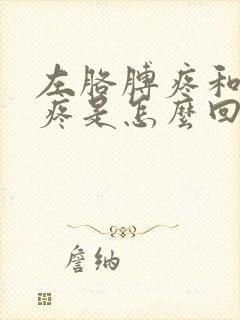 左胳膊疼和
疼是怎麼回
詹纳